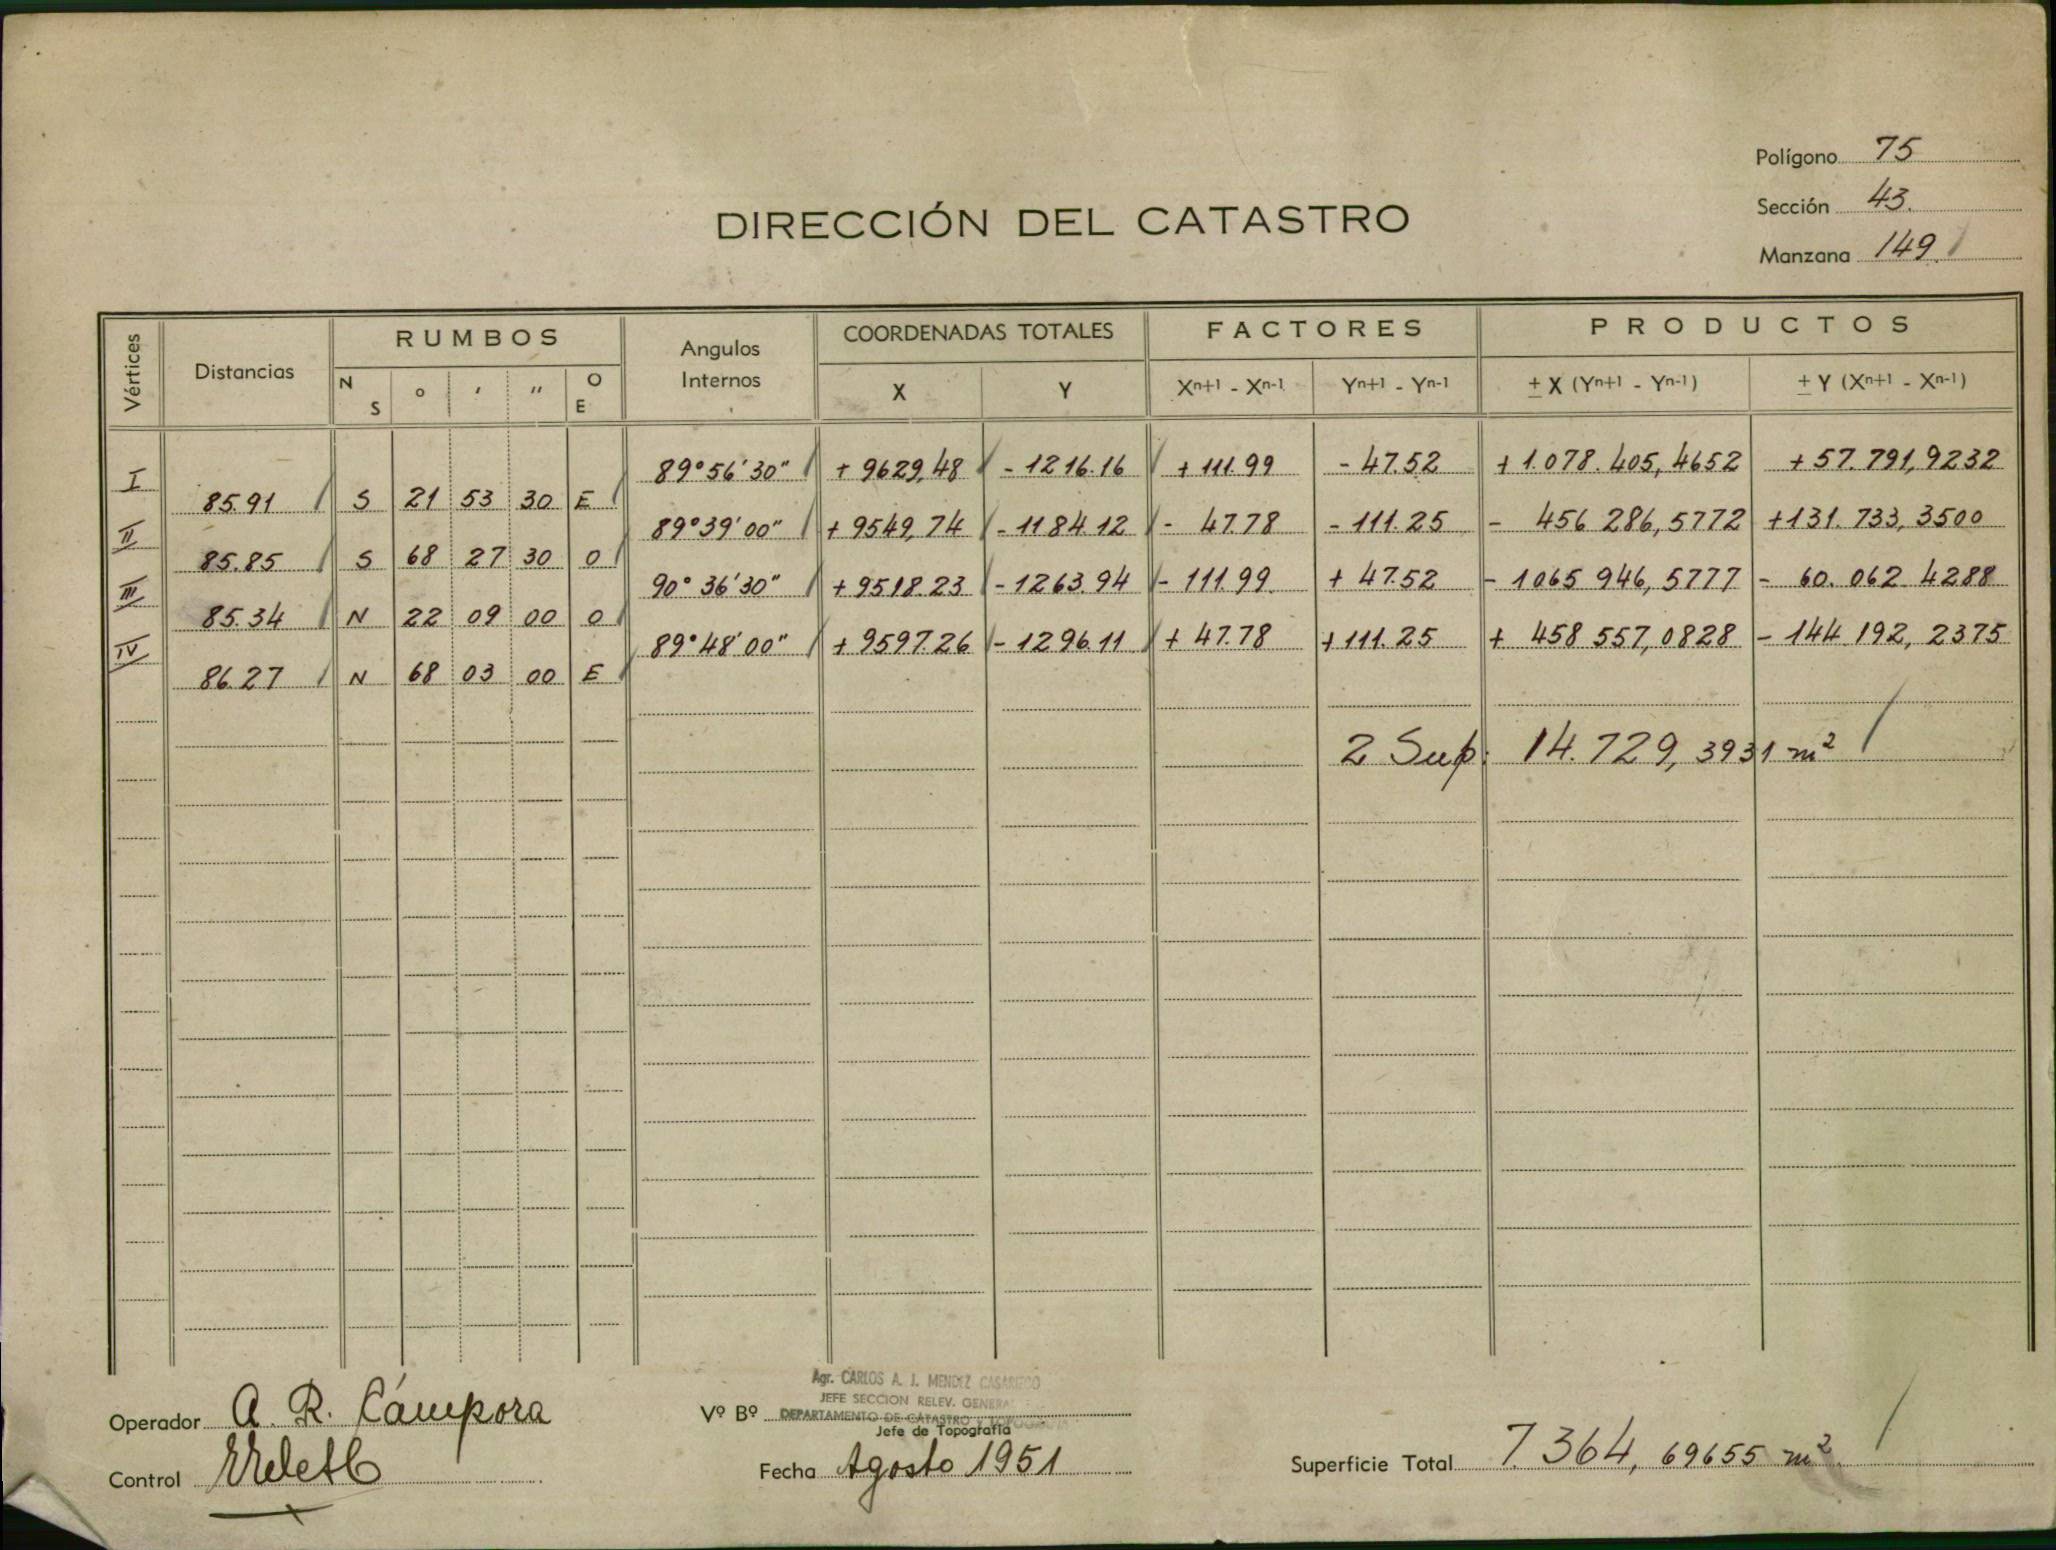 Polígono 75
Sección 43.
DIRECCIÓN DEL CATASTRO
Manzana 149.
Vértices Distancias RUMBOS Angulos Internos COORDENADAS TOTALES FACTORES PRODUCTOS
N S ° ′ ″ O E X Y Xn+1 - Xn-1 Yn+1 - Yn-1 ± X (Yn+1 - Yn-1) ± Y (Xn+1 - Xn-1)
I 89°56'30" + 9629,48 - 1216.16 + 111.99 - 47.52 + 1.078.405,4652 + 57.791,9232
85.91 S 21 53 30 E
II 89°39'00" + 9549,74 - 1184.12 - 47.78 - 111.25 - 456 286,5772 + 131.733,3500
85.85 S 68 27 30 O
III 90°36'30" + 9518.23 - 1263.94 - 111.99. + 47.52 - 1065 946,5777 - 60.062 4288
85.34 N 22 09 00 O
IV 89°48'00" + 9597.26 - 1296.11 + 47.78 + 111.25 + 458 557,0828 - 144.192,2375
86.27 N 68 03 00 E
2 Sup: 14.729,3931 m²
Agr. CARLOS A. J. MENDEZ CASARIEGO
JEFE SECCION RELEV. GENERAL
Operador A. R. Cámpora Vº Bº DEPARTAMENTO DE CATASTRO Y TOPOGRAFIA
Jefe de Topografía
Control
Fecha Agosto 1951
Superficie Total 7.364,69655 m²